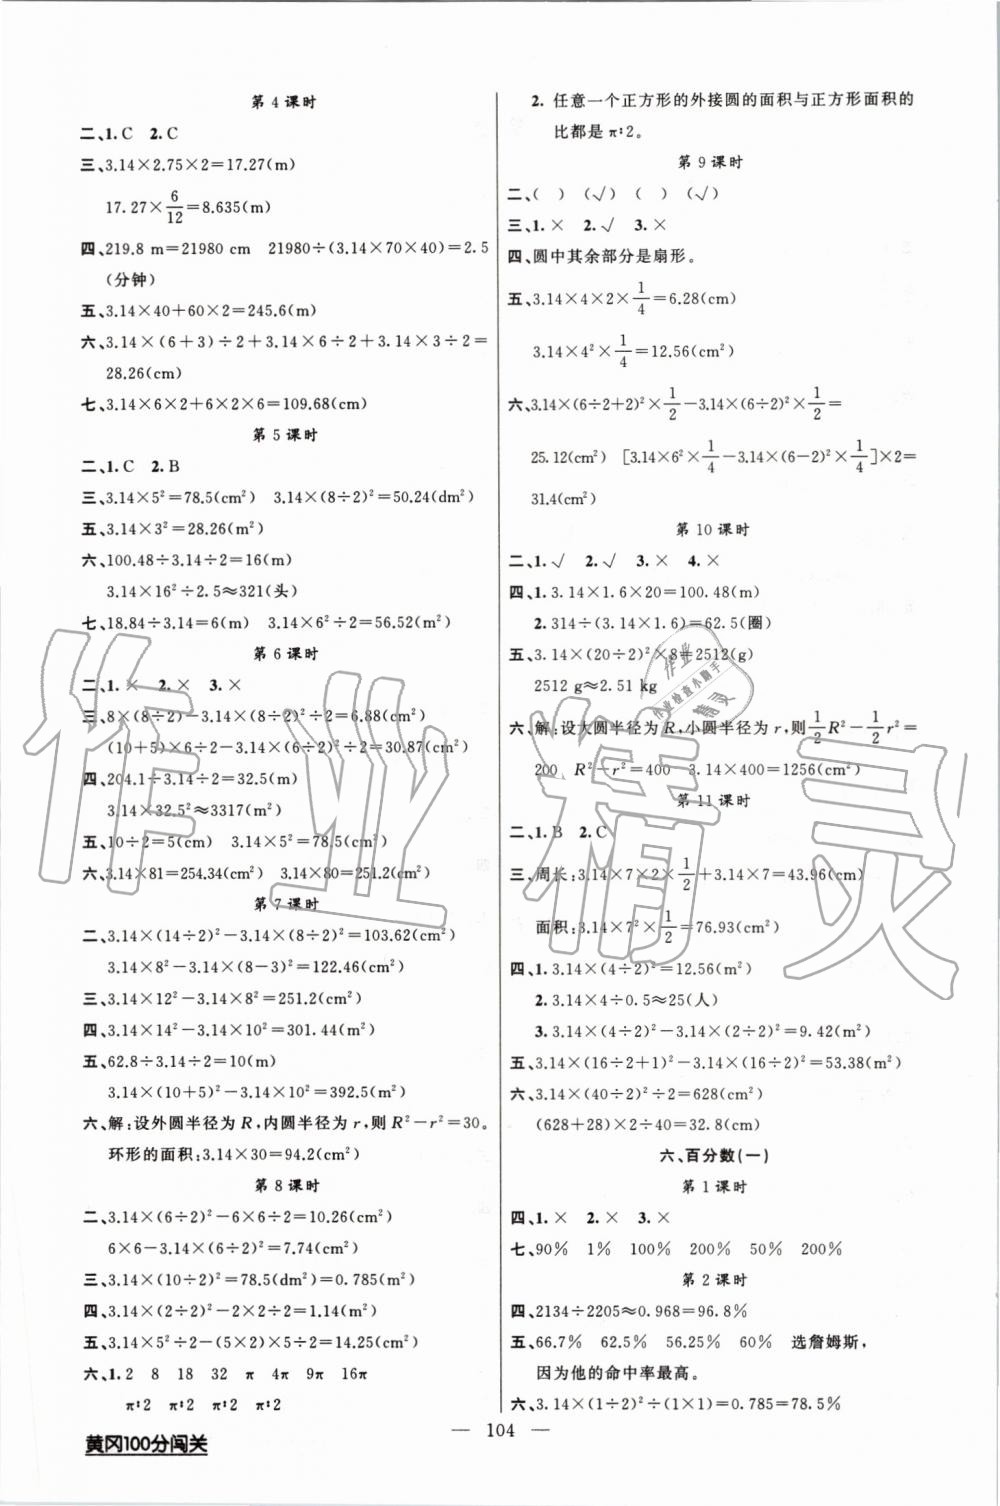 第4课时
二、1.C 2.C
三、3.14×2.75×2=17.27(m)
17.27×6/12=8.635(m)
四、219.8 m=21980 cm 21980÷(3.14×70×40)=2.5
(分钟)
五、3.14×40+60×2=245.6(m)
六、3.14×(6+3)÷2+3.14×6÷2+3.14×3÷2=
28.26(cm)
七、3.14×6×2+6×2×6=109.68(cm)
第5课时
二、1.C 2.B
三、3.14×5²=78.5(cm²) 3.14×(8÷2)²=50.24(dm²)
五、3.14×3²=28.26(m²)
六、100.48÷3.14÷2=16(m)
3.14×16²÷2.5≈321(头)
七、18.84÷3.14=6(m) 3.14×6²÷2=56.52(m²)
第6课时
二、1.× 2.× 3.×
三、8×(8÷2)-3.14×(8÷2)²÷2=6.88(cm²)
(10+5)×6÷2-3.14×(6÷2)²÷2=30.87(cm²)
四、204.1÷3.14÷2=32.5(m)
3.14×32.5²≈3317(m²)
五、10÷2=5(cm) 3.14×5²=78.5(cm²)
六、3.14×81=254.34(cm²) 3.14×80=251.2(cm²)
第7课时
二、3.14×(14÷2)²-3.14×(8÷2)²=103.62(cm²)
3.14×8²-3.14×(8-3)²=122.46(cm²)
三、3.14×12²-3.14×8²=251.2(cm²)
四、3.14×14²-3.14×10²=301.44(m²)
五、62.8÷3.14÷2=10(m)
3.14×(10+5)²-3.14×10²=392.5(m²)
六、解:设外圆半径为R,内圆半径为r,则R²-r²=30。
环形的面积:3.14×30=94.2(cm²)
第8课时
二、3.14×(6÷2)²-6×6÷2=10.26(cm²)
6×6-3.14×(6÷2)²=7.74(cm²)
三、3.14×(10÷2)²=78.5(dm²)=0.785(m²)
四、3.14×(2÷2)²-2×2÷2=1.14(m²)
五、3.14×5²÷2-(5×2)×5÷2=14.25(cm²)
六、1.2 8 18 32 π 4π 9π 16π
π∶2 π∶2 π∶2 π∶2
2. 任意一个正方形的外接圆的面积与正方形面积的
比都是π∶2。
第9课时
二、( ) (√) ( ) (√)
三、1.× 2.√ 3.×
四、圆中其余部分是扇形。
五、3.14×4×2×1/4=6.28(cm)
3.14×4²×1/4=12.56(cm²)
六、3.14×(6÷2+2)²×1/2-3.14×(6÷2)²×1/2=
25.12(cm²) [3.14×6²×1/4-3.14×(6-2)²×1/4]×2=
31.4(cm²)
第10课时
二、1.√ 2.√ 3.× 4.×
四、1.3.14×1.6×20=100.48(m)
2.314÷(3.14×1.6)=62.5(圈)
五、3.14×(20÷2)²×8=2512(g)
2512 g≈2.51 kg
六、解:设大圆半径为R,小圆半径为r,则1/2R²-1/2r²=
200 R²-r²=400 3.14×400=1256(cm²)
第11课时
二、1.B 2.C
三、周长:3.14×7×2×1/2+3.14×7=43.96(cm)
面积:3.14×7²×1/2=76.93(cm²)
四、1.3.14×(4÷2)²=12.56(m²)
2.3.14×4÷0.5≈25(人)
3.3.14×(4÷2)²-3.14×(2÷2)²=9.42(m²)
五、3.14×(16÷2+1)²-3.14×(16÷2)²=53.38(m²)
六、3.14×(40÷2)²÷2=628(cm²)
(628+28)×2÷40=32.8(cm)
六、百分数(一)
第1课时
四、1.× 2.× 3.×
七、90% 1% 100% 200% 50% 200%
第2课时
四、2134÷2205≈0.968=96.8%
五、66.7% 62.5% 56.25% 60% 选詹姆斯,
因为他的命中率最高。
六、3.14×(1÷2)²÷(1×1)=0.785=78.5%
— 104 —
黄冈100分闯关
作业精灵
作业
作业检查小助手
精灵